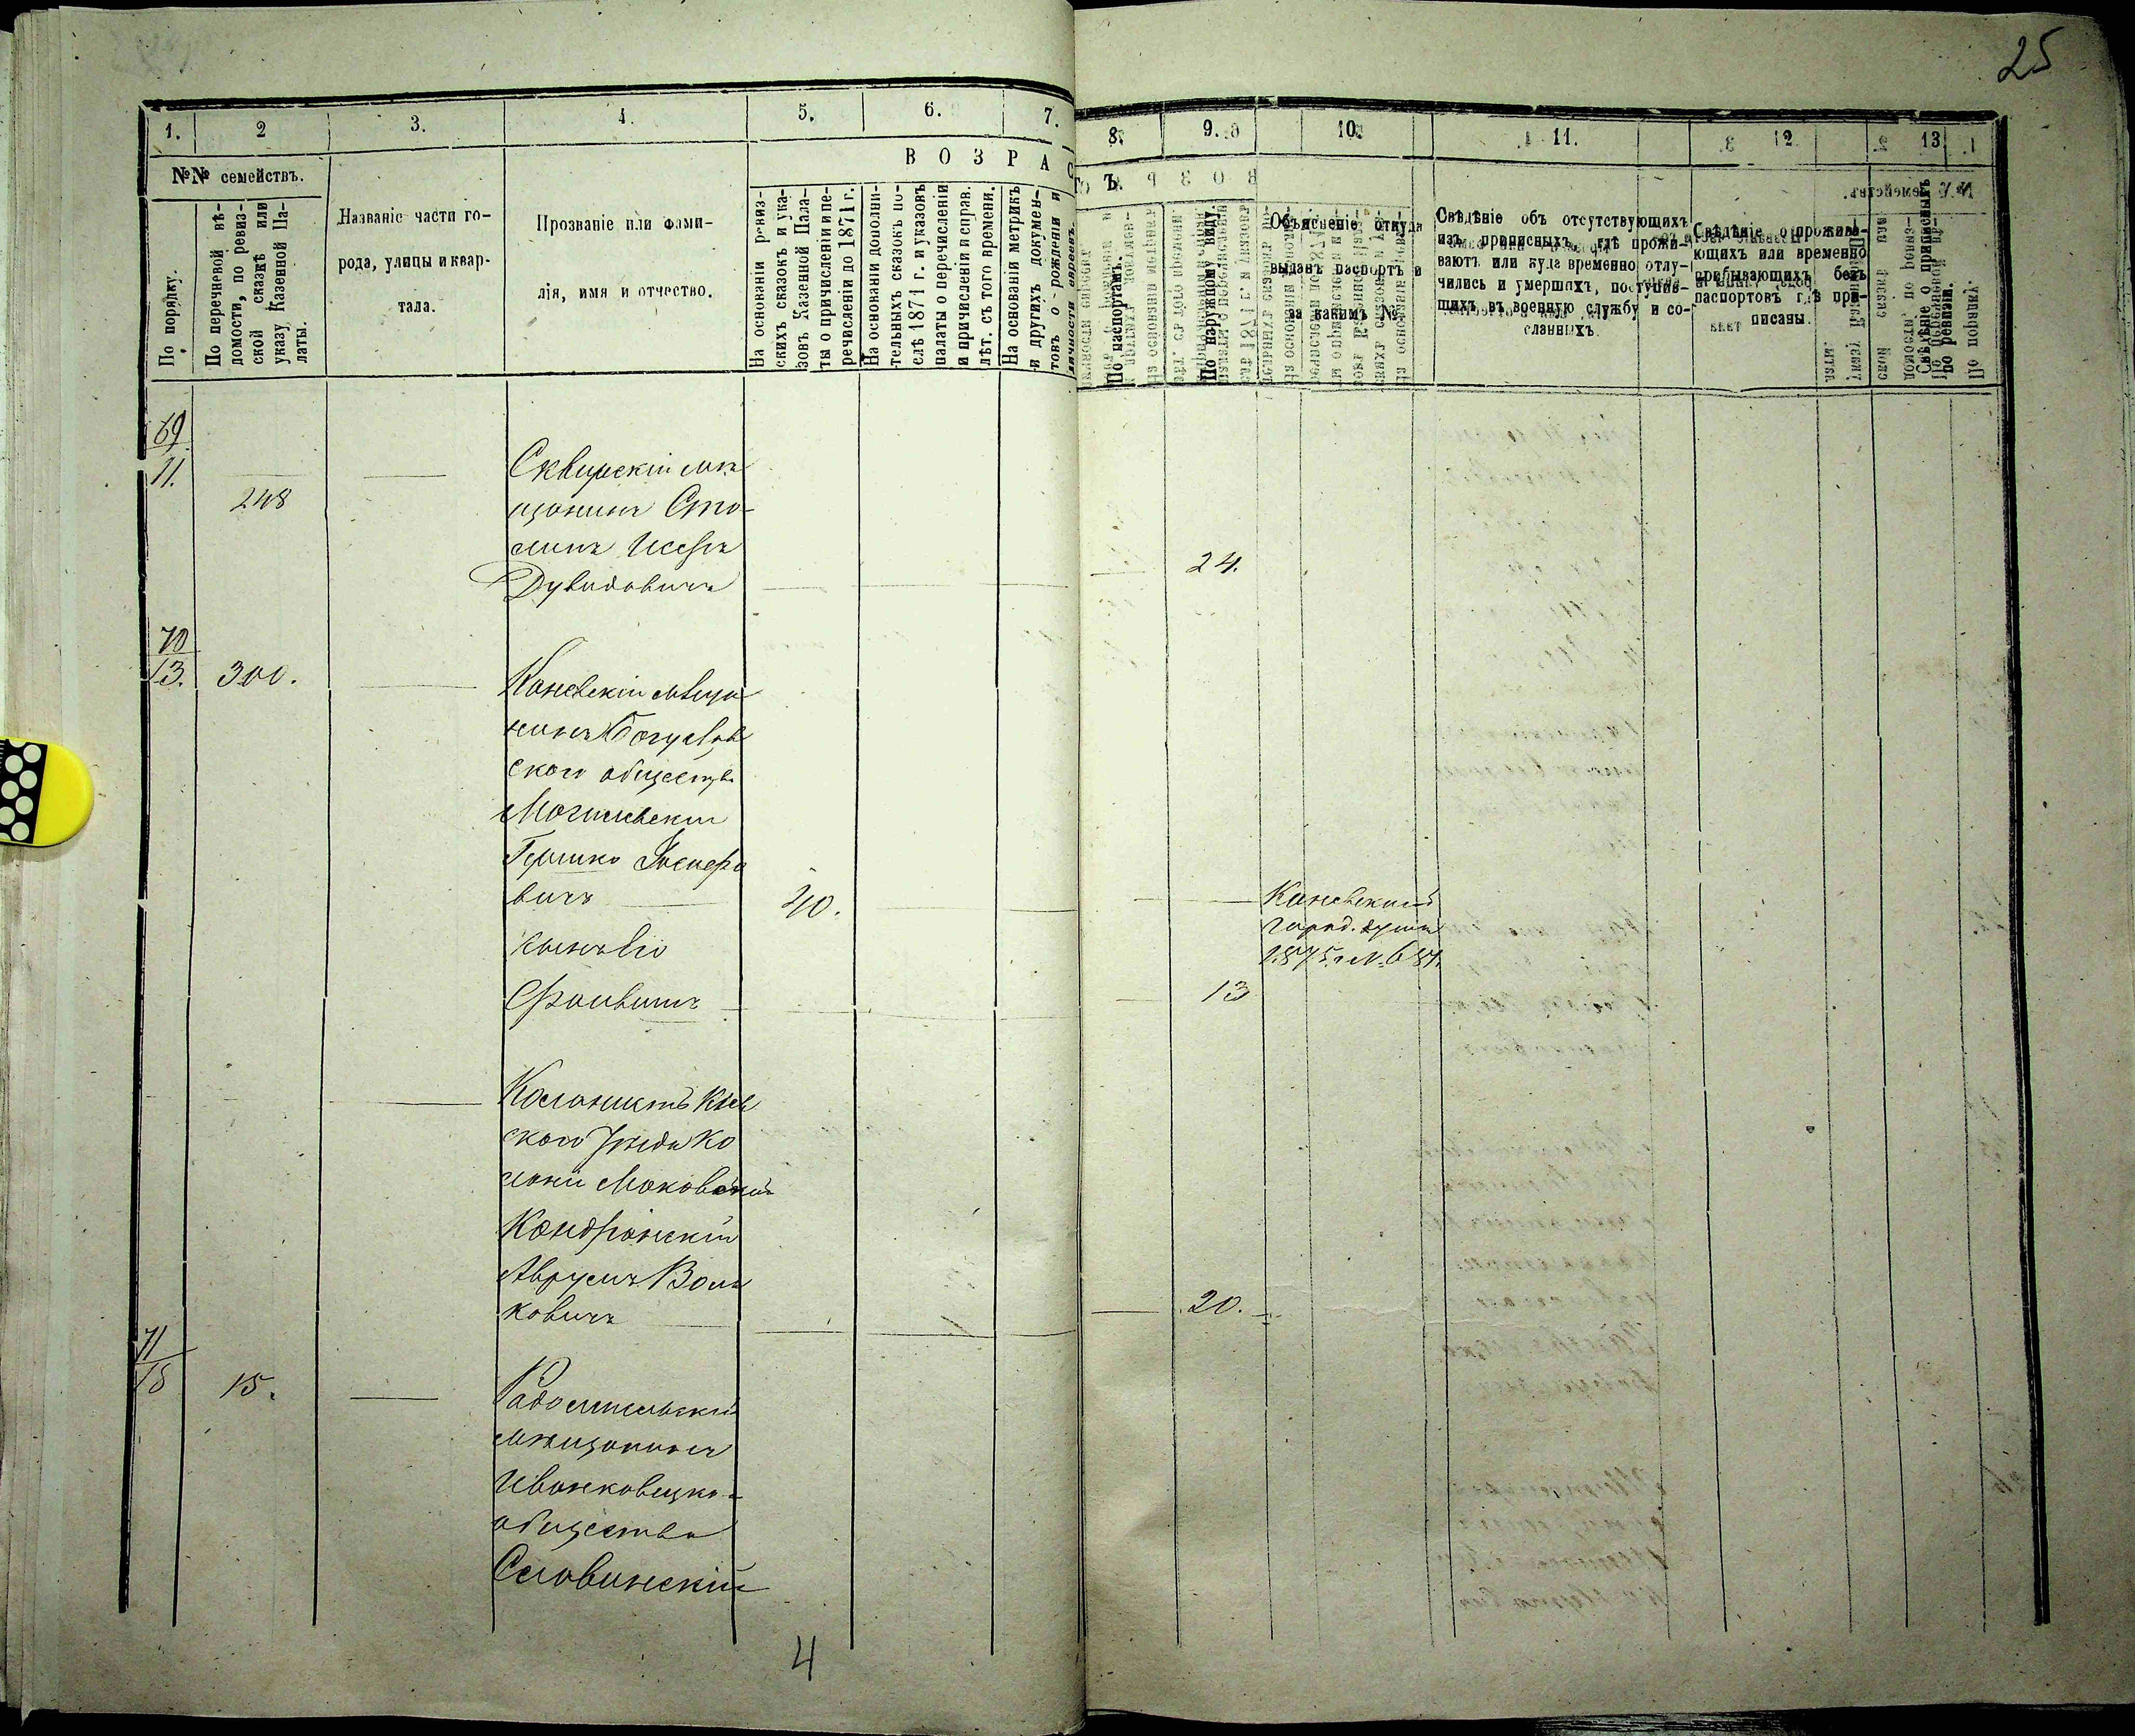 25
1.
2
3.
4.
5.
6.
7.
8.
9.
10.
11.
12
13
№№ семействъ.
По порядку.
По перечневой вѣ-
домости, по ревиз-
ской сказкѣ или
указу Казенной Па-
латы.
Названіе части го-
рода, улицы и квар-
тала.
Прозваніе или фами-
лія, имя и отчество.
ВОЗРАСТЪ.
На основаніи ревиз-
скихъ сказокъ и ука-
зовъ Казенной Пала-
ты о причисленіи и пе-
речисленіи до 1871 г.
На основаніи дополни-
тельныхъ сказокъ по-
слѣ 1871 г. и указовъ
палаты о перечисленіи
и причисленіи и справ.
лѣт. съ того времени.
На основаніи метрикъ
и другихъ докумен-
товъ о рожденіи и
личности евреевъ.
По паспортамъ.
По наружному виду.
Объясненіе откуда
выданъ паспортъ и
за какимъ №
Свѣдѣніе объ отсутствующихъ
изъ приписныхъ, гдѣ прожи-
ваютъ или куда временно отлу-
чились и умершихъ, поступив-
шихъ въ военную службу и со-
сланныхъ.
Свѣдѣніе о прожива-
ющихъ или временно
пребывающихъ безъ
паспортовъ гдѣ при-
писаны.
Свѣдѣніе о приписныхъ
по ревизіи.
69
11.
248
Сквирскій мѣ
щанинъ Сто
линъ Иссеръ
Дувидовичъ
24.
70
13.
300.
Каневскій мѣща
нинъ Богуслав
скаго общества
Могилевскій
Гершко Иосифо
вичъ
40.
Каневской
город. думы
1875 г. № 681.
сынъ его
Фроивимъ
13
Колонистъ Кіев
скаго уѣзда Ко
лоніи Маковской
Кондрянскій
Аврумъ Воль
ковичъ
20.
71
15
15.
Радомысльскій
мѣщанинъ
Иванковецка
общества
Славинскій
4